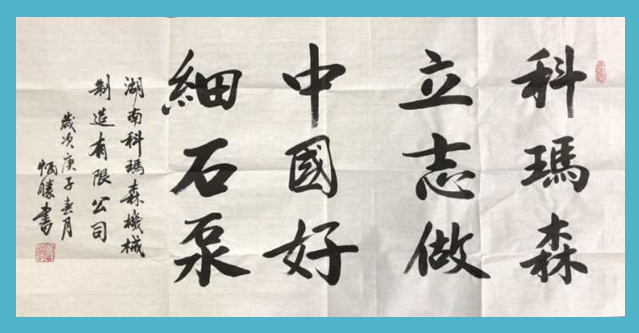 科瑪森
立志做
中國好
細石泵
湖南科瑪森機械
制造有限公司
歲次庚子春月
炳勝書